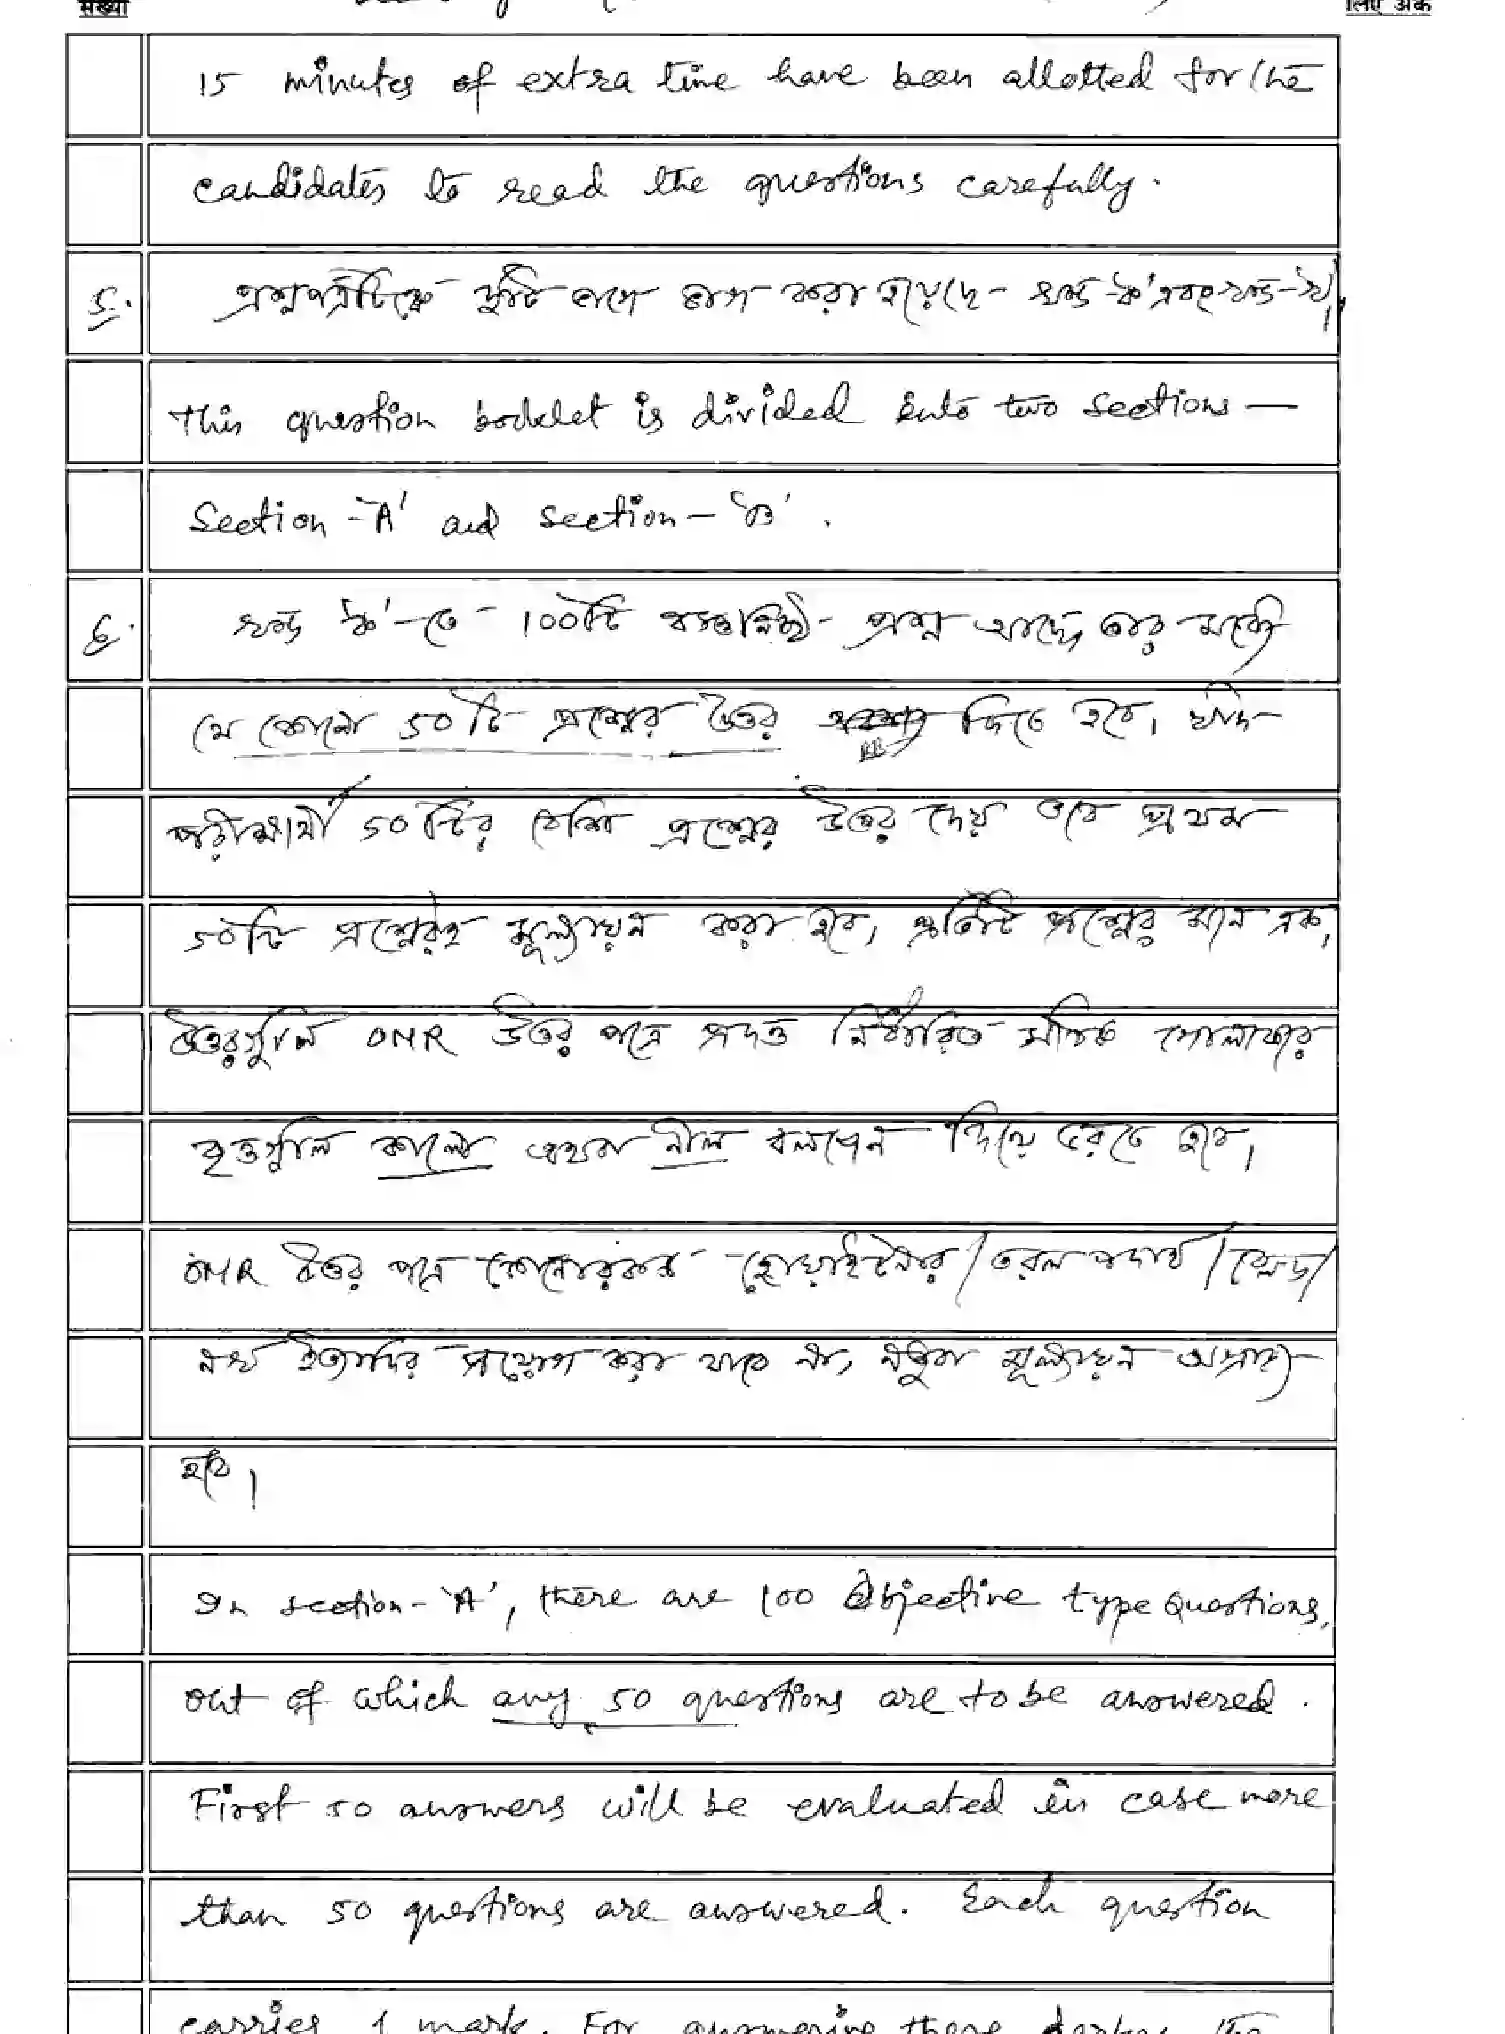 संख्या
लिए अंक
15 minutes of extra time have been allotted for the
candidates to read the questions carefully.
5. প্রশ্নপত্রটিকে দুটি ভাগে ভাগ করা হয়েছে- খন্ড-'ক' এবং খন্ড-'খ',
This question booklet is divided into two sections —
Section - 'A' and section - 'B' .
6. খন্ড 'ক'-তে- 100টি বস্তুনিষ্ঠ- প্রশ্ন আছে তার মধ্যে
যে কোনো 50টি প্রশ্নের উত্তর দিতে হবে, যদি
পরীক্ষার্থী 50টির বেশি প্রশ্নের উত্তর দেয় তবে প্রথম
50টি প্রশ্নেরই মূল্যায়ন করা হবে, প্রতিটি প্রশ্নের মান এক,
উত্তরগুলি OMR উত্তর পত্রে প্রদত্ত নির্ধারিত সঠিক গোলাকার
বৃত্তগুলি কালো অথবা নীল বলপেন দিয়ে ভরতে হবে,
OMR উত্তর পত্রে কোনোরকম হোয়াইটনার/তরল পদার্থ/ব্লেড/
নখ ইত্যাদির প্রয়োগ করা যাবে না, নতুবা মূল্যায়ন অগ্রাহ্য
হবে।
In section - 'A', there are 100 Objective type Questions,
out of which any 50 questions are to be answered .
First 50 answers will be evaluated in case more
than 50 questions are answered. Each question
carries 1 mark. For answering these darken the